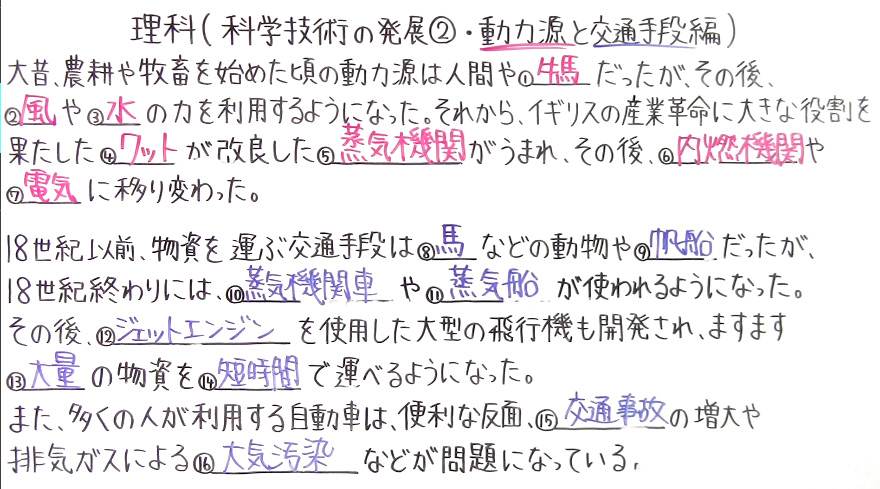 理科(科学技術の発展②・動力源と交通手段編)
大昔、農耕や牧畜を始めた頃の動力源は人間や①牛馬だったが、その後、
②風や③水の力を利用するようになった。それから、イギリスの産業革命に大きな役割を
果たした④ワットが改良した⑤蒸気機関がうまれ、その後、⑥内燃機関や
⑦電気に移り変わった。
18世紀以前、物資を運ぶ交通手段は⑧馬などの動物や⑨帆船だったが、
18世紀終わりには、⑩蒸気機関車や⑪蒸気船が使われるようになった。
その後、⑫ジェットエンジンを使用した大型の飛行機も開発され、ますます
⑬大量の物資を⑭短時間で運べるようになった。
また、多くの人が利用する自動車は、便利な反面、⑮交通事故の増大や
排気ガスによる⑯大気汚染などが問題になっている。